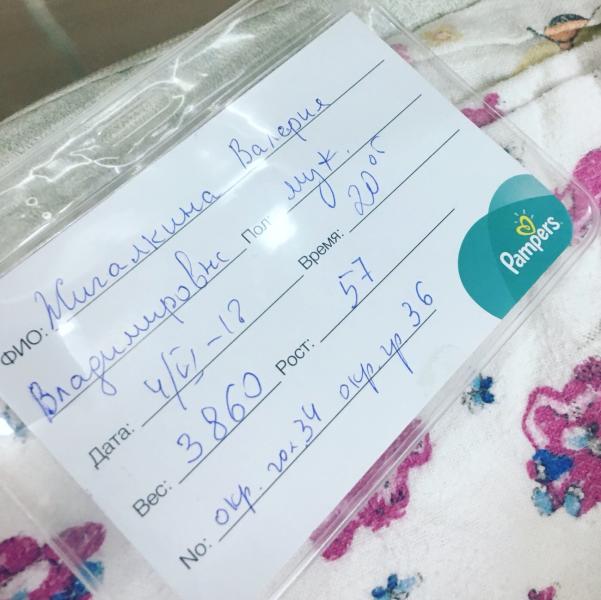 ФИО: Жигалкина Валерия
Владимировнс Пол: муж.
Дата: 4/VI-18 Время: 20 05
Вес: 3860 Рост: 57
No: окр. гол 34 окр. гр 36
Pampers